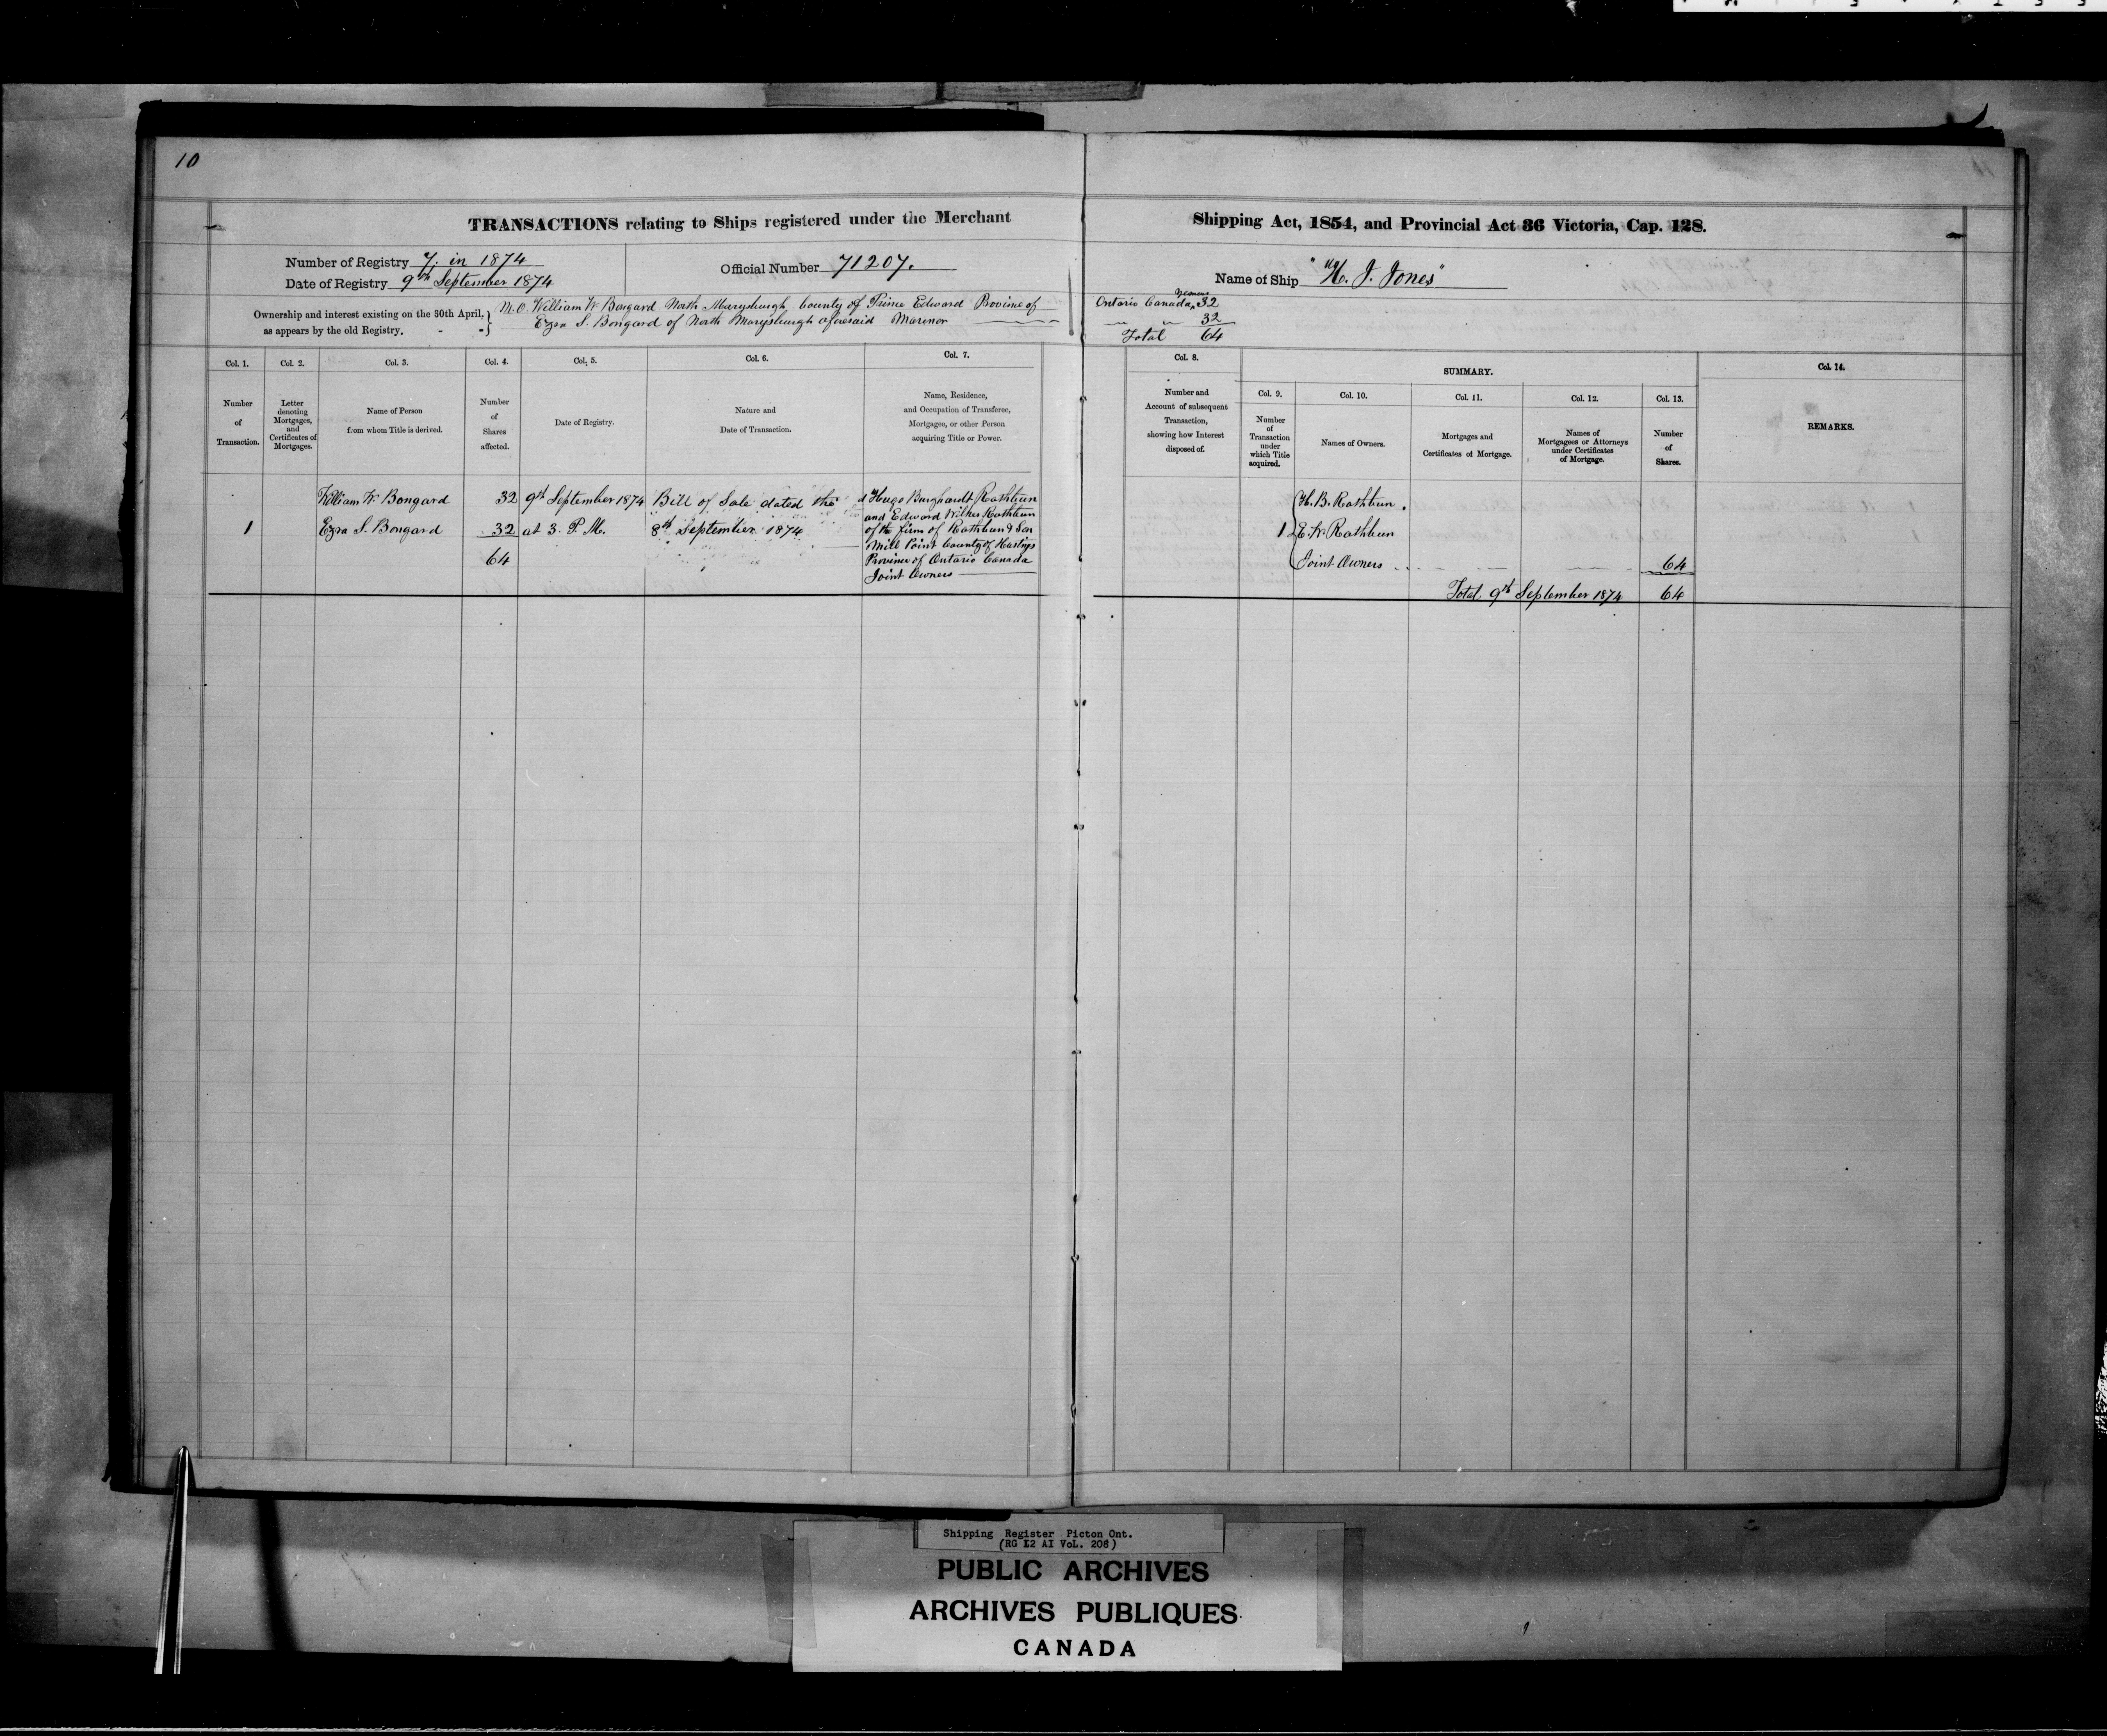 10
TRANSACTIONS relating to Ships registered under the Merchant Shipping Act, 1854, and Provincial Act 36 Victoria, Cap. 128.
Number of Registry 7. in 1874
Date of Registry 9th September 1874
Official Number 71207.
Name of Ship "H. J. Jones"
Ownership and interest existing on the 30th April,
as appears by the old Registry.
M.O. William W. Bongard North Marysburgh County of Prince Edward Province of Ontario Canada Yeoman 32
Ezra S. Bongard of North Marysburgh aforesaid Marinor 32
Total 64
Col. 1.
Number
of
Transaction.
Col. 2.
Letter
denoting
Mortgages,
and
Certificates of
Mortgages.
Col. 3.
Name of Person
from whom Title is derived.
Col. 4.
Number
of
Shares
affected.
Col. 5.
Date of Registry.
Col. 6.
Nature and
Date of Transaction.
Col. 7.
Name, Residence,
and Occupation of Transferee,
Mortgagee, or other Person
acquiring Title or Power.
Col. 8.
Number and
Account of subsequent
Transaction,
showing how Interest
disposed of.
SUMMARY.
Col. 9.
Number
of
Transaction
under
which Title
acquired.
Col. 10.
Names of Owners.
Col. 11.
Mortgages and
Certificates of Mortgage.
Col. 12.
Names of
Mortgagees or Attorneys
under Certificates
of Mortgage.
Col. 13.
Number
of
Shares.
Col. 14.
REMARKS.
William W. Bongard 32 9th September 1874 Bill of Sale dated the
1 Ezra S. Bongard 32 at 3. P.M. 8th September 1874
64
Hugo Burghardt Rathbun
and Edward Wilkes Rathbun
of the firm of Rathbun & Son
Mill Point County of Hastings
Province of Ontario Canada
Joint Owners
H. B. Rathbun
1 E. W. Rathbun
Joint Owners 64
Total 9th September 1874 64
Shipping Register Picton Ont.
(RG 12 AI VoL. 208)
PUBLIC ARCHIVES
ARCHIVES PUBLIQUES
CANADA